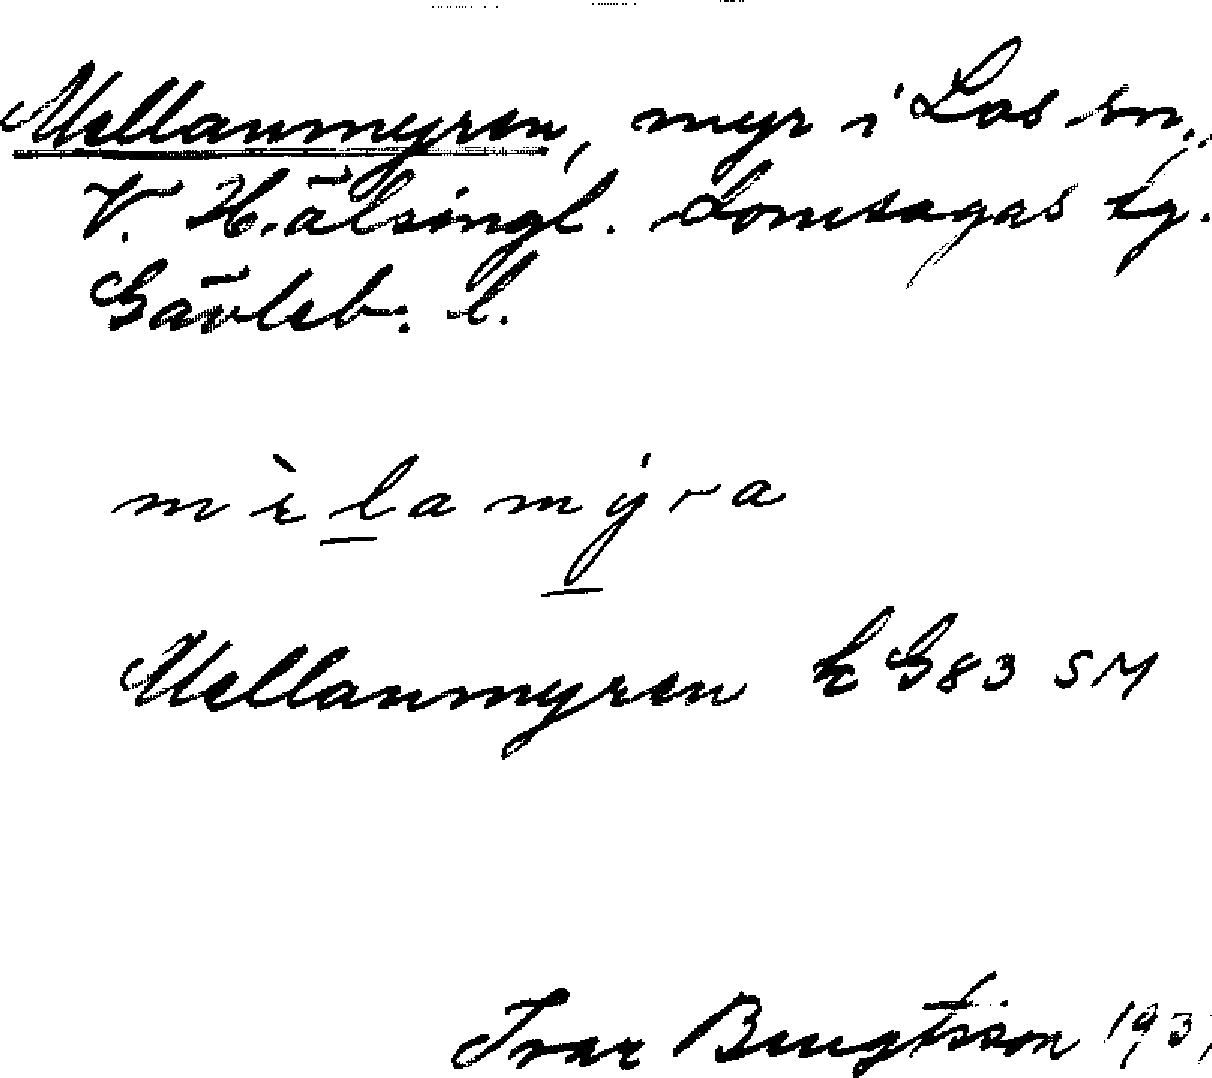 Mellanmyren, myr i Los sn.,
V. Hälsingl. domsagas tg.
Gävleb. l.
mèlamýra
Mellanmyren k G83 SM
Ivar Bengtsson 193